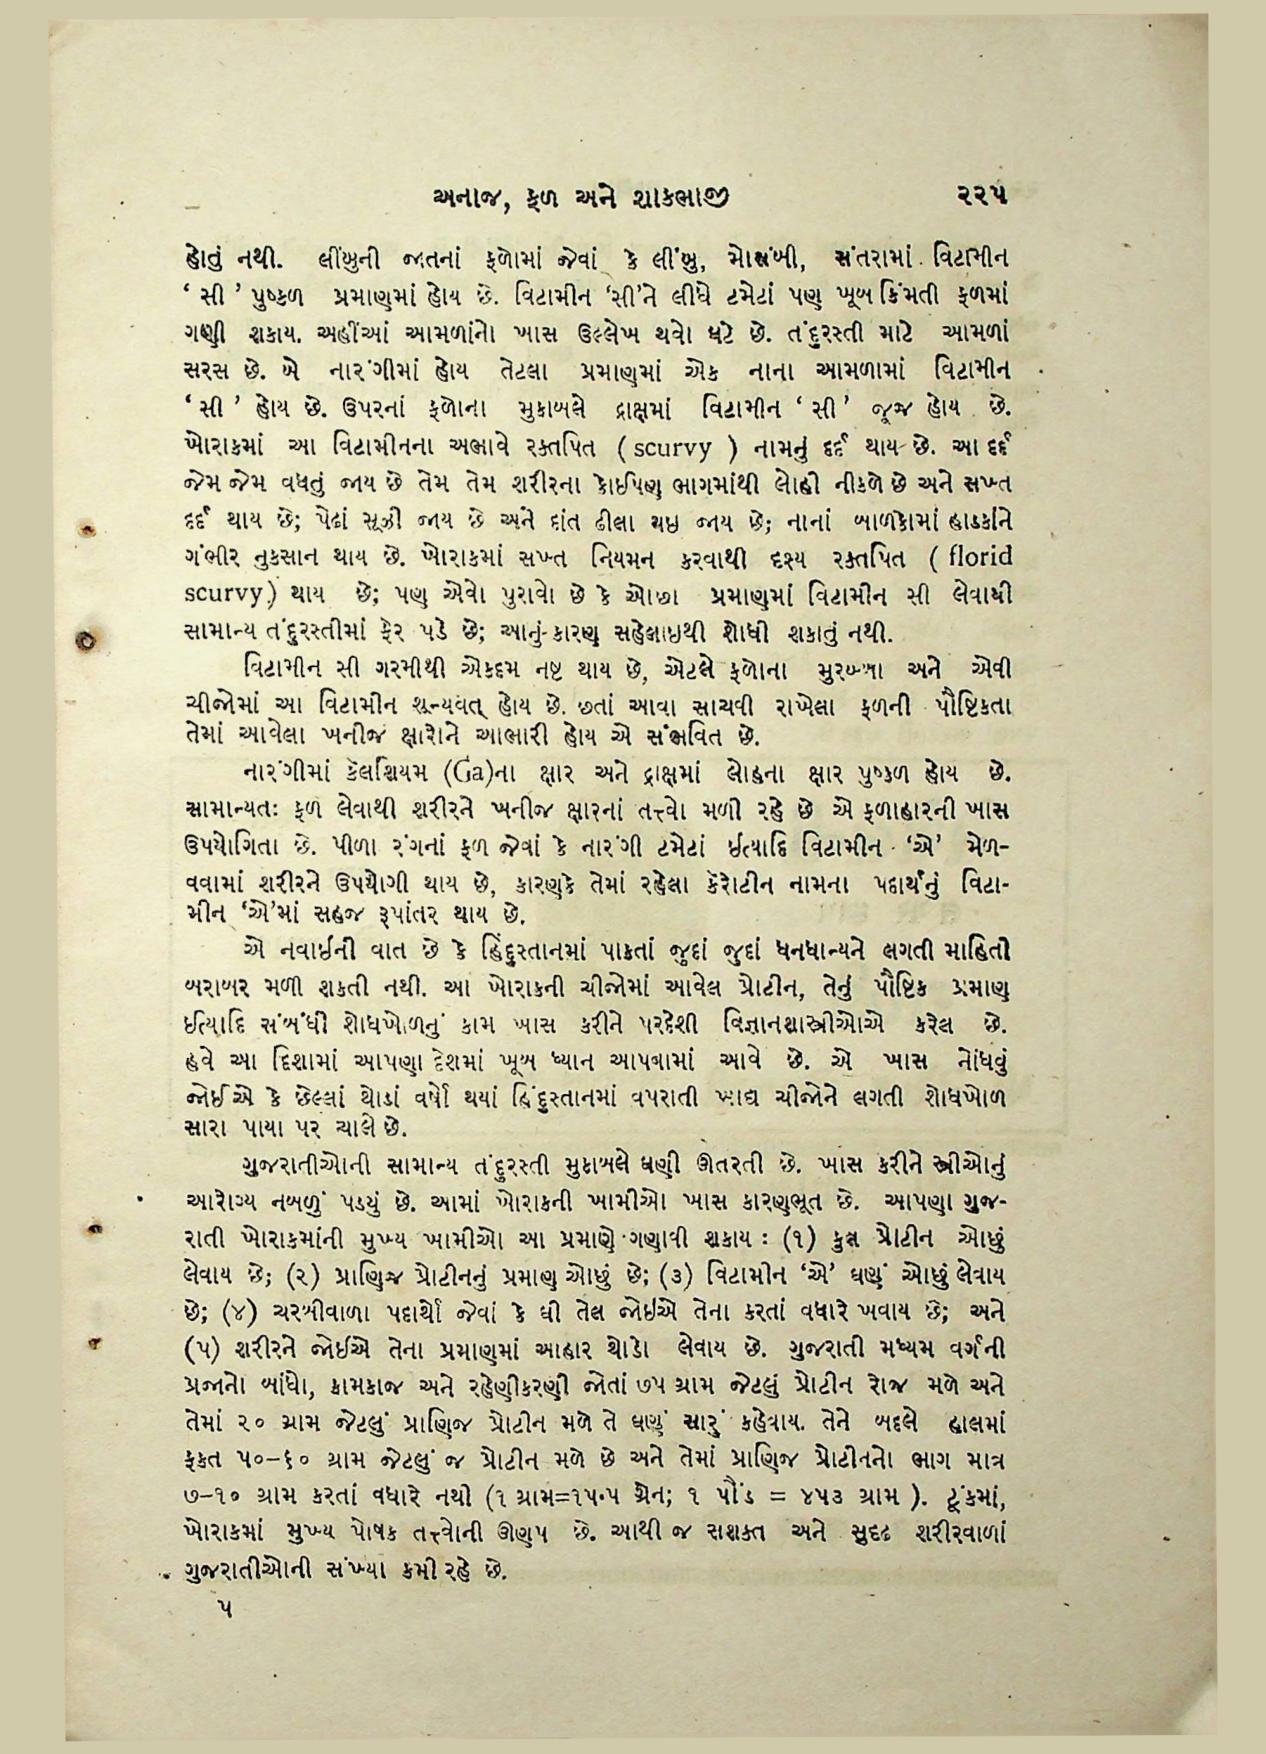 અનાજ, ફળ અને શાકભાજી ૨૨૫
હોતું નથી. લીંબુની જાતનાં ફળોમાં જેવાં કે લીંબુ, મોસંબી, સંતરામાં વિટામીન
‘ સી ’ પુષ્કળ પ્રમાણમાં હોય છે. વિટામીન ‘સી’ને લીધે ટમેટાં પણ ખૂબ કિંમતી ફળમાં
ગણી શકાય. અહીંઆં આમળાંનો ખાસ ઉલ્લેખ થવો ઘટે છે. તંદુરસ્તી માટે આમળાં
સરસ છે. બે નારંગીમાં હોય તેટલા પ્રમાણમાં એક નાના આમળામાં વિટામીન
‘ સી ’ હોય છે. ઉપરનાં ફળોના મુકાબલે દ્રાક્ષમાં વિટામીન ‘ સી ’ જૂજ હોય છે.
ખોરાકમાં આ વિટામીનના અભાવે રક્તપિત ( scurvy ) નામનું દર્દ થાય છે. આ દર્દ
જેમ જેમ વધતું જાય છે તેમ તેમ શરીરના કોઈપણ ભાગમાંથી લોહી નીકળે છે અને સખ્ત
દર્દ થાય છે; પેઢાં સૂઝી જાય છે અને દાંત ઢીલા થઇ જાય છે; નાનાં બાળકોમાં હાડકાંને
ગંભીર નુકસાન થાય છે. ખોરાકમાં સખ્ત નિયમન કરવાથી દૃશ્ય રક્તપિત ( florid
scurvy ) થાય છે; પણ એવો પુરાવો છે કે ઓછા પ્રમાણમાં વિટામીન સી લેવાથી
સામાન્ય તંદુરસ્તીમાં ફેર પડે છે; આનું કારણ સહેલાઇથી શોધી શકાતું નથી.
વિટામીન સી ગરમીથી એકદમ નષ્ટ થાય છે, એટલે ફળોના મુરબ્બા અને એવી
ચીજોમાં આ વિટામીન શૂન્યવત્ હોય છે. છતાં આવા સાચવી રાખેલા ફળની પૌષ્ટિકતા
તેમાં આવેલા ખનીજ ક્ષારોને આભારી હોય એ સંભવિત છે.
નારંગીમાં કૅલશિયમ (Ga)ના ક્ષાર અને દ્રાક્ષમાં લોહના ક્ષાર પુષ્કળ હોય છે.
સામાન્યતઃ ફળ લેવાથી શરીરને ખનીજ ક્ષારનાં તત્ત્વો મળી રહે છે એ ફળાહારની ખાસ
ઉપયોગિતા છે. પીળા રંગનાં ફળ જેવાં કે નારંગી ટમેટાં ઈત્યાદિ વિટામીન ‘એ’ મેળ-
વવામાં શરીરને ઉપયોગી થાય છે, કારણકે તેમાં રહેલા કૅરોટીન નામના પદાર્થનું વિટા-
મીન ‘એ’માં સહજ રૂપાંતર થાય છે.
એ નવાઇની વાત છે કે હિંદુસ્તાનમાં પાકતાં જુદાં જુદાં ધનધાન્યને લગતી માહિતી
બરાબર મળી શકતી નથી. આ ખોરાકની ચીજોમાં આવેલ પ્રોટીન, તેનું પૌષ્ટિક પ્રમાણ
ઈત્યાદિ સંબંધી શોધખોળનું કામ ખાસ કરીને પરદેશી વિજ્ઞાનશાસ્ત્રીઓએ કરેલ છે.
હવે આ દિશામાં આપણા દેશમાં ખૂબ ધ્યાન આપવામાં આવે છે. એ ખાસ નોંધવું
જોઈએ કે છેલ્લાં થોડાં વર્ષો થયાં હિંદુસ્તાનમાં વપરાતી ખાદ્ય ચીજોને લગતી શોધખોળ
સારા પાયા પર ચાલે છે.
ગુજરાતીઓની સામાન્ય તંદુરસ્તી મુકાબલે ઘણી ઊતરતી છે. ખાસ કરીને સ્ત્રીઓનું
આરોગ્ય નબળું પડયું છે. આમાં ખોરાકની ખામીઓ ખાસ કારણભૂત છે. આપણા ગુજ-
રાતી ખોરાકમાંની મુખ્ય ખામીઓ આ પ્રમાણે ગણાવી શકાય : (૧) કુલ પ્રોટીન ઓછું
લેવાય છે; (૨) પ્રાણિજ પ્રોટીનનું પ્રમાણ ઓછું છે; (૩) વિટામીન ‘એ’ ઘણું ઓછું લેવાય
છે; (૪) ચરબીવાળા પદાર્થો જેવાં કે ઘી તેલ જોઇએ તેના કરતાં વધારે ખવાય છે; અને
(૫) શરીરને જોઈએ તેના પ્રમાણમાં આહાર થોડો લેવાય છે. ગુજરાતી મધ્યમ વર્ગની
પ્રજાનો બાંધો, કામકાજ અને રહેણીકરણી જોતાં ૭૫ ગ્રામ જેટલું પ્રોટીન રોજ મળે અને
તેમાં ૨૦ ગ્રામ જેટલું પ્રાણિજ પ્રોટીન મળે તે ઘણું સારું કહેવાય. તેને બદલે હાલમાં
ફકત ૫૦-૬૦ ગ્રામ જેટલું જ પ્રોટીન મળે છે અને તેમાં પ્રાણિજ પ્રોટીનનો ભાગ માત્ર
૭-૧૦ ગ્રામ કરતાં વધારે નથી (૧ ગ્રામ=૧૫·૫ ગ્રેન; ૧ પૌંડ = ૪૫૩ ગ્રામ ). ટૂંકમાં,
ખોરાકમાં મુખ્ય પોષક તત્ત્વોની ઊણપ છે. આથી જ સશક્ત અને સુદૃઢ શરીરવાળાં
ગુજરાતીઓની સંખ્યા કમી રહે છે.
૫